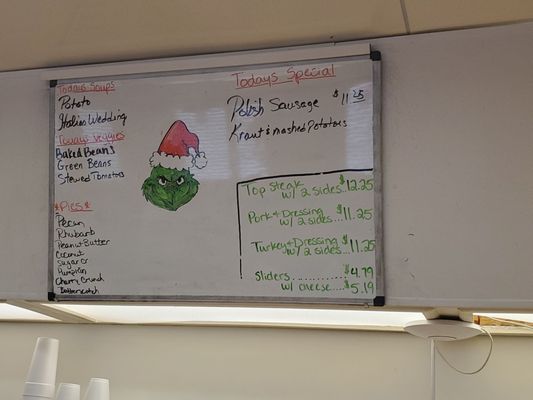 Todays Soups
Potato
Italian Wedding
Todays Veggies
Baked Beans
Green Beans
Stewed Tomatoes
*Pies*
Pecan
Rhubarb
Peanut Butter
Coconut
Sugar Cr
Pumpkin
Cherry Crunch
Butterscotch
Todays Special
Polish Sausage $11.25
Kraut & mashed Potatoes
Top Steak $12.25
w/ 2 sides
Pork & Dressing $11.25
w/ 2 sides...
Turkey & Dressing $11.25
w/ 2 sides...
Sliders.......... $4.79
w/ cheese..... $5.19